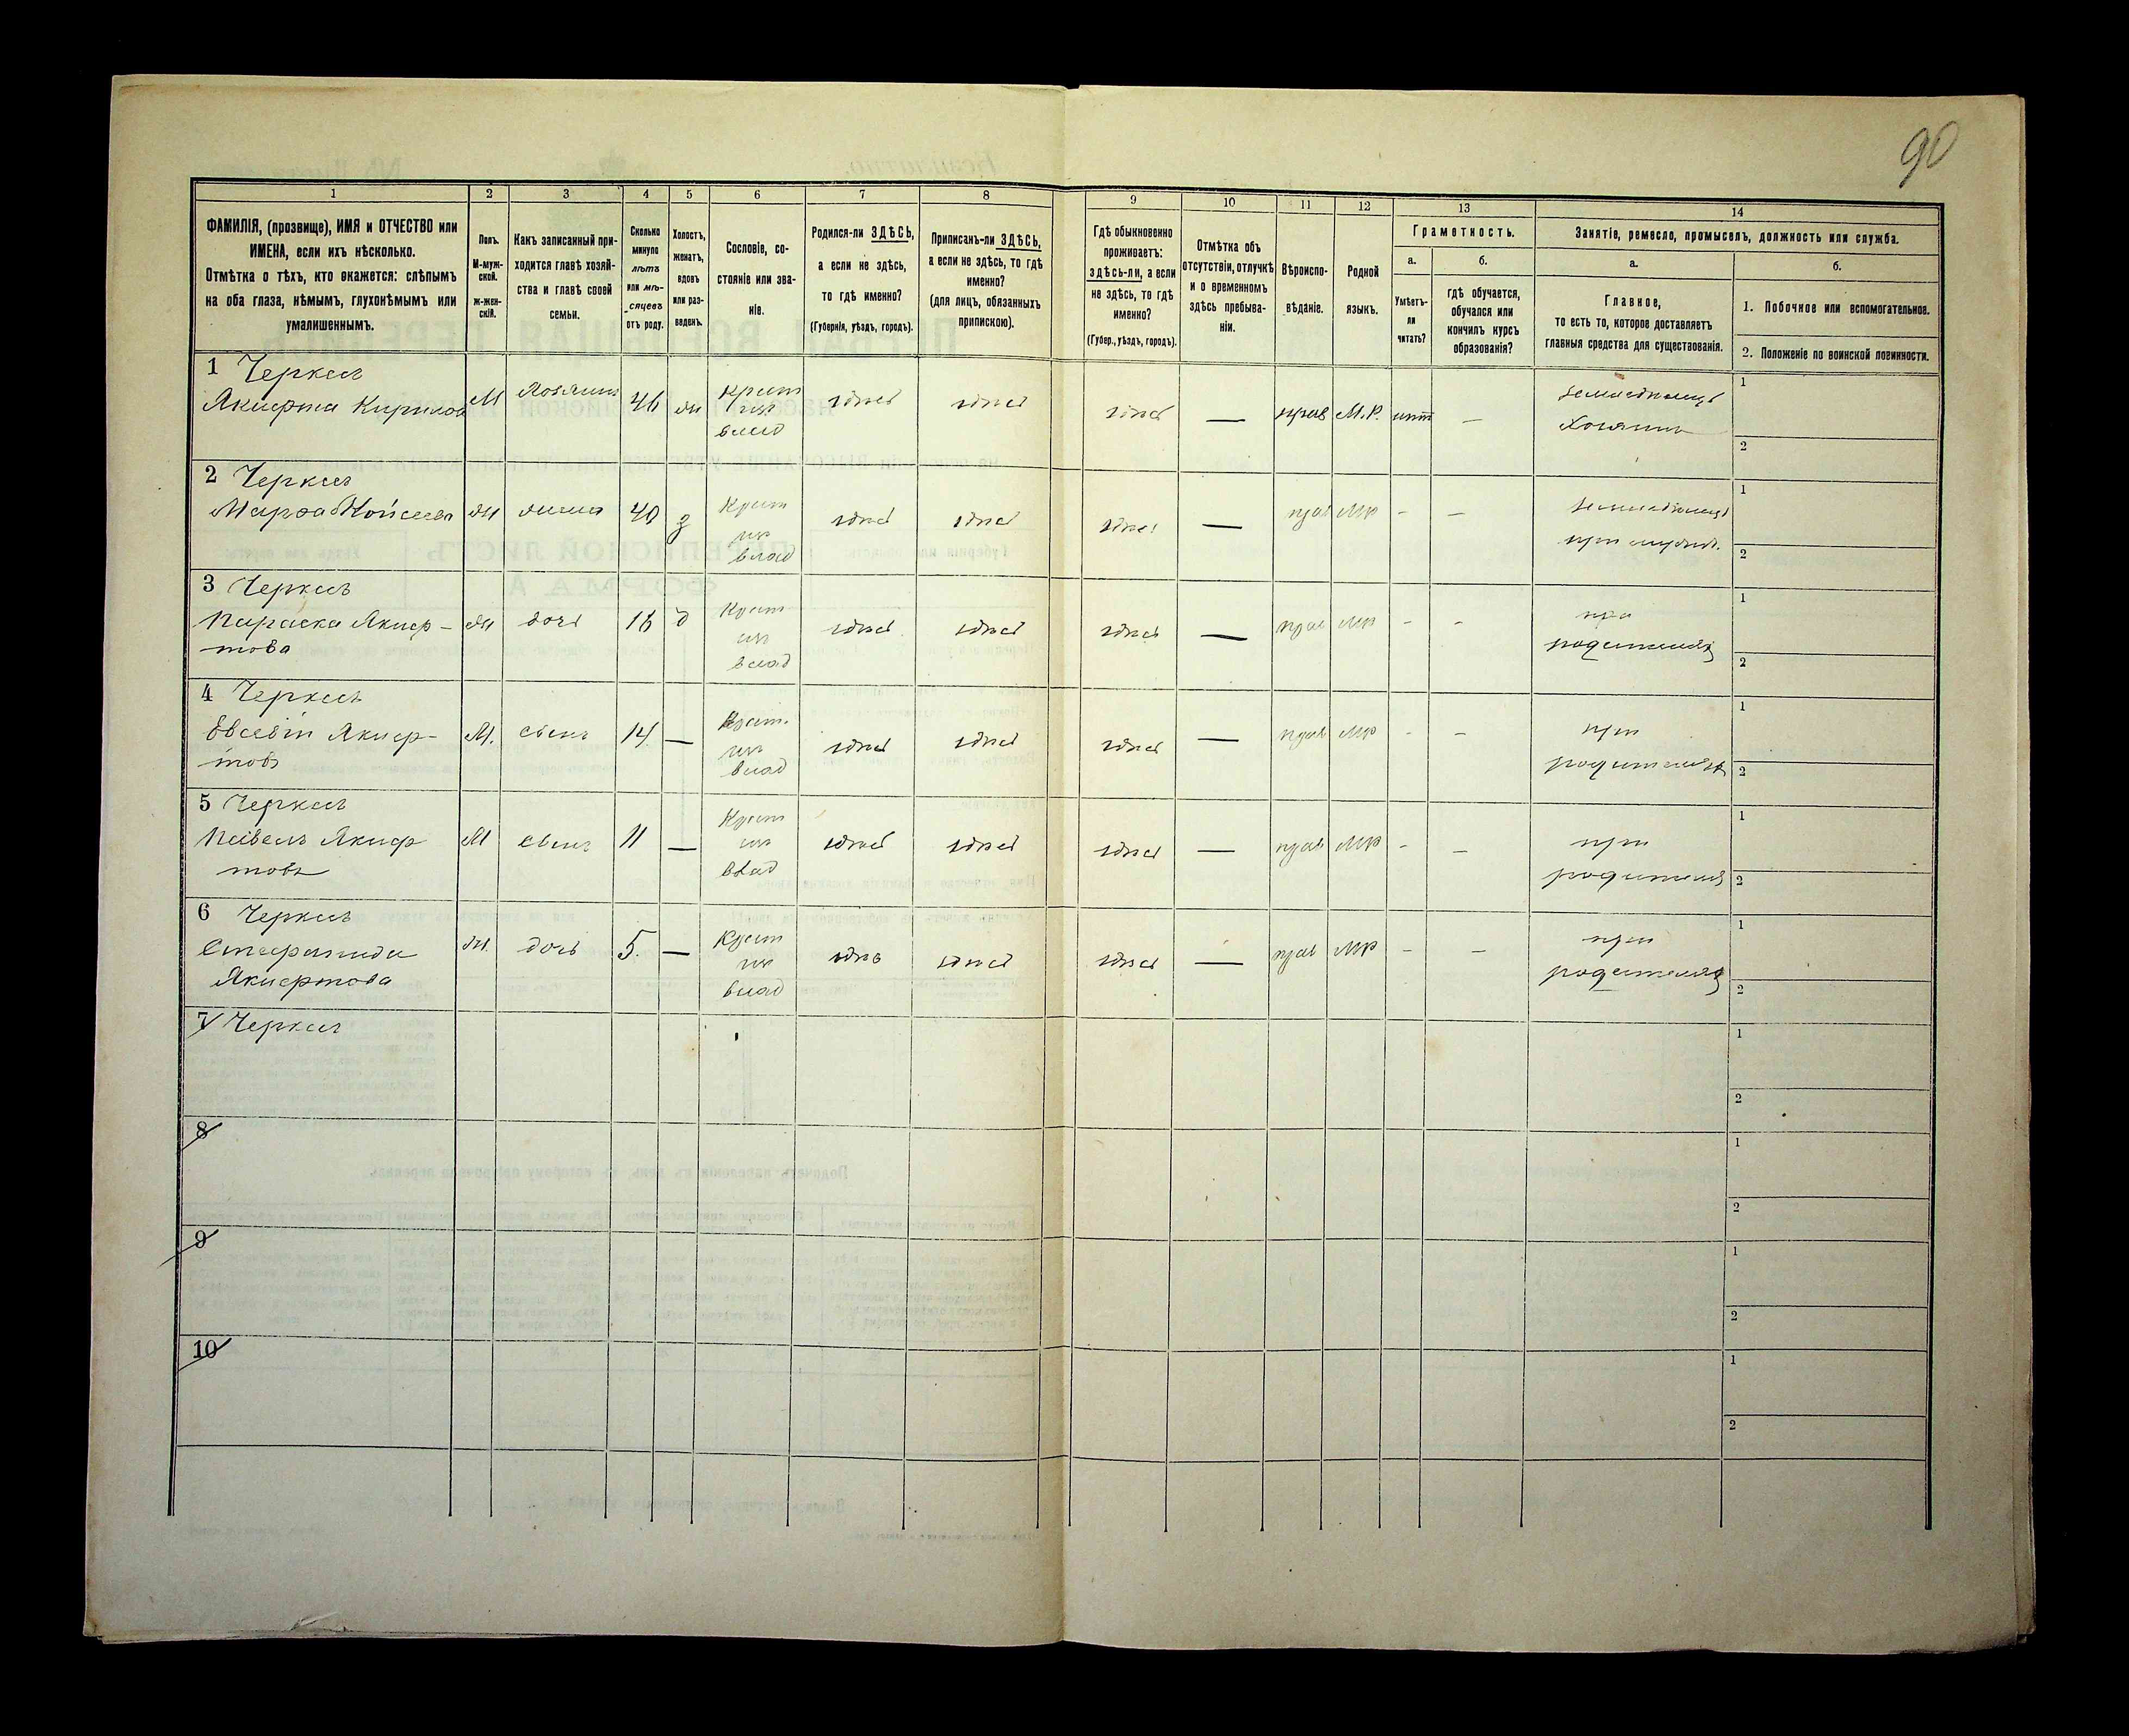 90
1
2
3
4
5
6
7
8
9
10
11
12
13
14
ФАМИЛІЯ, (прозвище), ИМЯ и ОТЧЕСТВО или
ИМЕНА, если ихъ нѣсколько.
Отмѣтка о тѣхъ, кто окажется: слѣпымъ
на оба глаза, нѣмымъ, глухонѣмымъ или
умалишеннымъ.
Полъ.
М-муж-
ской.
ж-жен-
скій.
Какъ записанный при-
ходится главѣ хозяй-
ства и главѣ своей
семьи.
Сколько
минуло
лѣтъ
или мѣ-
сяцевъ
отъ роду.
Холостъ,
женатъ,
вдовъ
или раз-
веденъ.
Сословіе, со-
стояніе или зва-
ніе.
Родился-ли ЗДѢСЬ,
а если не здѣсь,
то гдѣ именно?
(Губернія, уѣздъ, городъ).
Приписанъ-ли ЗДѢСЬ,
а если не здѣсь, то гдѣ
именно?
(для лицъ, обязанныхъ
припискою).
Гдѣ обыкновенно
проживаетъ:
здѣсь-ли, а если
не здѣсь, то гдѣ
именно?
(Губер., уѣздъ, городъ).
Отмѣтка объ
отсутствіи, отлучкѣ
и о временномъ
здѣсь пребыва-
ніи.
Вѣроиспо-
вѣданіе.
Родной
языкъ.
Грамотность.
а.
Умѣетъ-
ли
читать?
б.
гдѣ обучается,
обучался или
кончилъ курсъ
образованія?
Занятіе, ремесло, промыселъ, должность или служба.
а.
Главное,
то есть то, которое доставляетъ
главныя средства для существованія.
б.
1. Побочное или вспомогательное.
2. Положеніе по воинской повинности.
1 Черкас
Якифта Кирилов М Хозяинъ 46 жи Крест
ик
влад здѣсь здѣсь здѣсь — прав М.Р. нѣт — Хозяинъ 1
2
2 Черкасъ
Марфа Мойсеева жи жена 40 з Крест
ик
влад здѣсь здѣсь здѣсь — прав МР - - 1
2
3 Черкасъ
Параска Якиф- жи дочь 16 д Крест
ик
влад здѣсь здѣсь здѣсь — прав МР - - при 1
това родителях 2
4 Черкасъ
Евсевій Якиф- М. сынъ 14 — Крест.
ик
влад здѣсь здѣсь здѣсь — прав МР - - при 1
товъ родителях 2
5 Черкасъ
Павелъ Якиф М сынъ 11 — Крест
ик
влад здѣсь здѣсь здѣсь — прав МР - — при 1
товъ родителях 2
6 Черкасъ
Стефанида жи. дочь 5. — Крест
ик
влад здѣсь здѣсь здѣсь — прав МР - - при 1
Якифтова родителях 2
7 Черкасъ 1
2
8 1
2
9 1
2
10 1
2